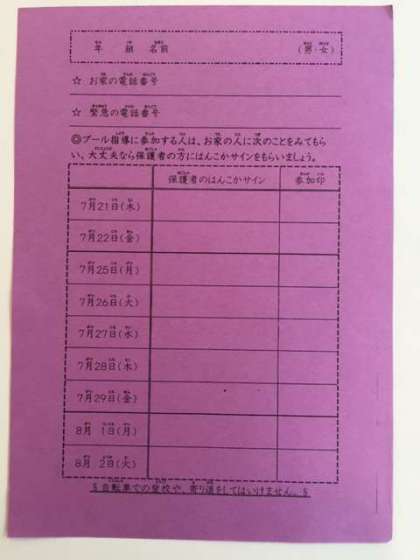 年 組 名前 (男・女)
☆ お家の電話番号
☆ 緊急の電話番号
◎プール指導に参加する人は、お家の人に次のことをみてもら
い、大丈夫なら保護者の方にはんこかサインをもらいましょう。
保護者のはんこかサイン 参加印
7月21日(木)
7月22日(金)
7月25日(月)
7月26日(火)
7月27日(水)
7月28日(木)
7月29日(金)
8月 1日(月)
8月 2日(火)
§自転車での登校や、寄り道をしてはいけません。§